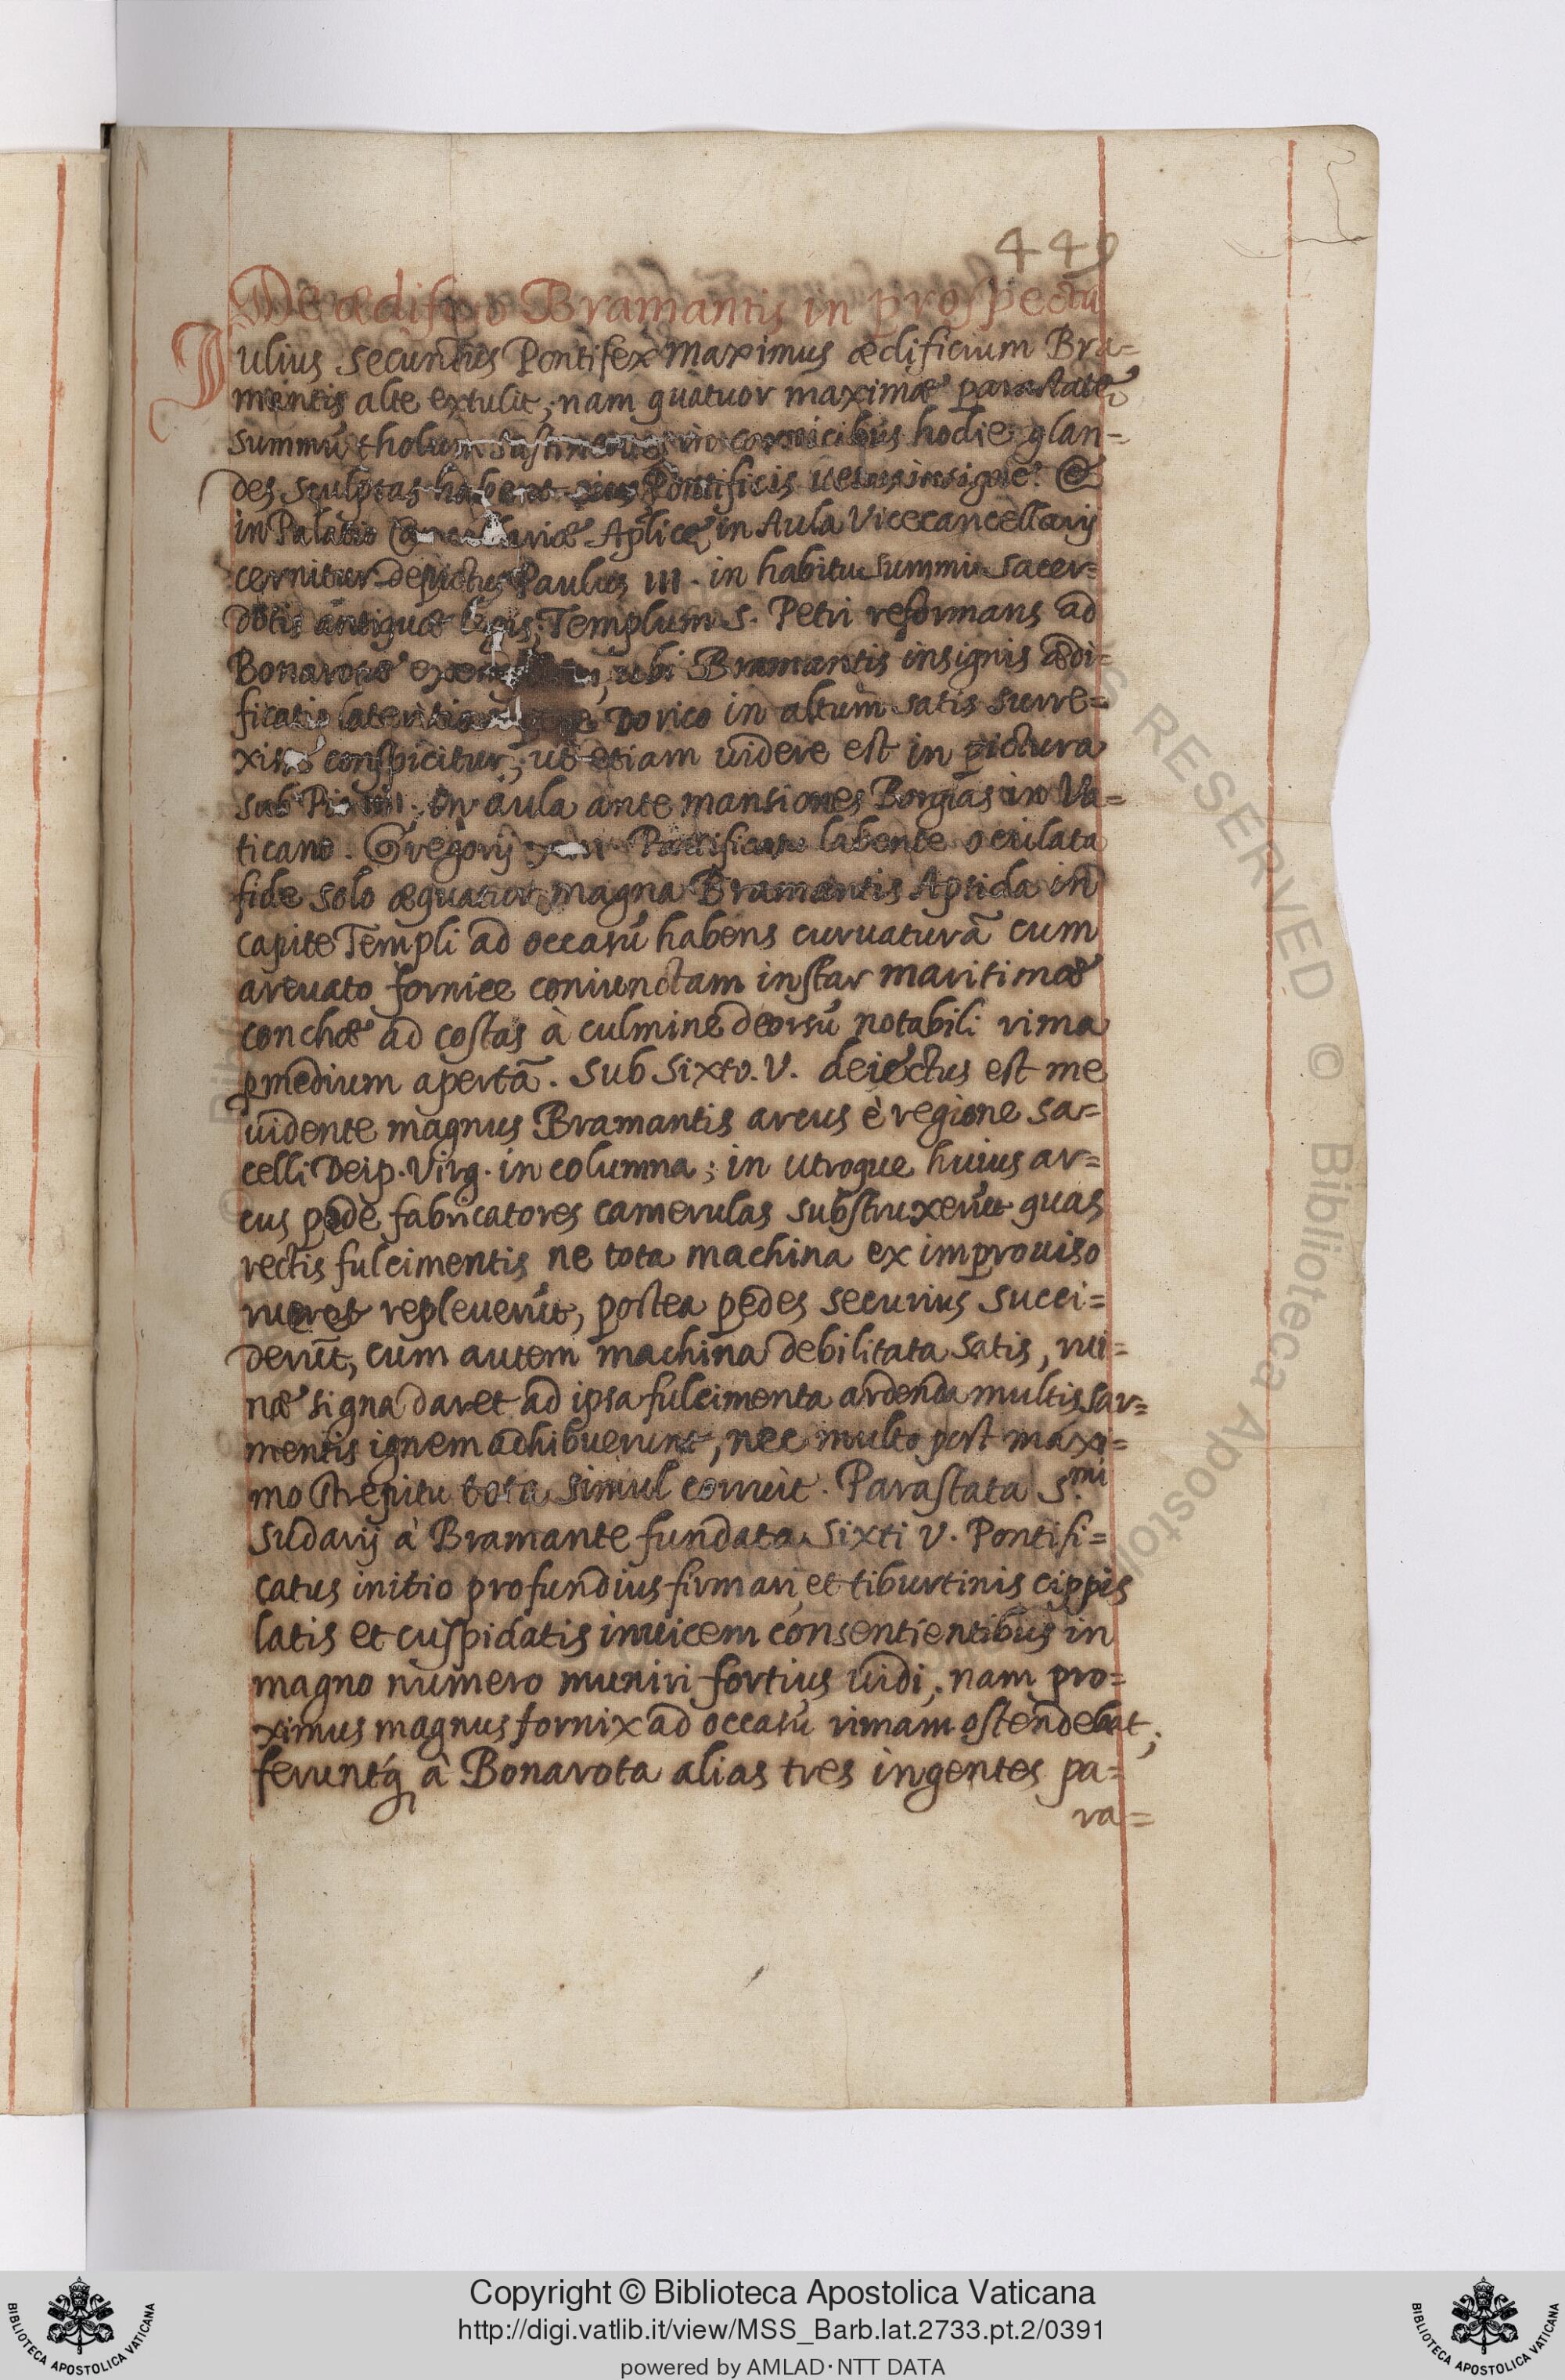 449
De ædificio Bramantis in prospectu
Iulius secundus Pontifex maximus ædificium Bra=
mantis alte extulit, nam quatuor maximæ parastatæ
summũ tholum sustinentes in cornicibus hodie glan=
des sculptas habent eius Pontificis insigne. &
in Palatio Cancellariæ Aplicę in Aula Vicecancellarij
cernitur depictus Paulus III. in habitu summi sacer=
dotis antiquæ legis, Templum S. Petri reformans ad
Bonarotæ , ubi Bramantis insignis ædi=
ficatio lateritio Dorico in altum satis surre=
xisse conspicitur, ut etiam uidere est in pictura
sub Pio IIII. in aula ante mansiones Borgias in Va=
ticano. Gregorij Pontificatu labente oculata
fide solo æquatur magna Bramantis Apsida in
capite Templi ad occasũ habens curuaturã cum
arcuato fornice coniunctam instar maritimæ
conchæ ad costas à culmine deorsũ notabili rima
p medium apertã. Sub Sixto. V. deiectus est me
uidente magnus Bramantis arcus è regione sa=
celli Deip. Virg. in columna; in utroque huius ar=
cus pede fabricatores camerulas substruxerũt quas
rectis fulcimentis ne tota machina ex improuiso
rueret repleuerũt, postea pedes securius succi=
derũt, cum autem machina debilitata satis, rui=
næ signa daret ad ipsa fulcimenta ardenda multis sar=
mentis ignem adhibuerunt, nec multo post maxi=
mo strepitu tota simul corruit. Parastata S.mi
Sudarij à Bramante fundata Sixti V. Pontifi=
catus initio profundius firmari, et tiburtinis cippis
latis et cuspidatis inuicem consentientibus in
magno numero muniri fortius uidi, nam pro=
ximus magnus fornix ad occasũ rimam ostendebat;
feruntq́ à Bonarota alias tres ingentes pa=
ra=
Copyright © Biblioteca Apostolica Vaticana
http://digi.vatlib.it/view/MSS_Barb.lat.2733.pt.2/0391
powered by AMLAD·NTT DATA
BIBLIOTECA APOSTOLICA VATICANA
BIBLIOTECA APOSTOLICA VATICANA